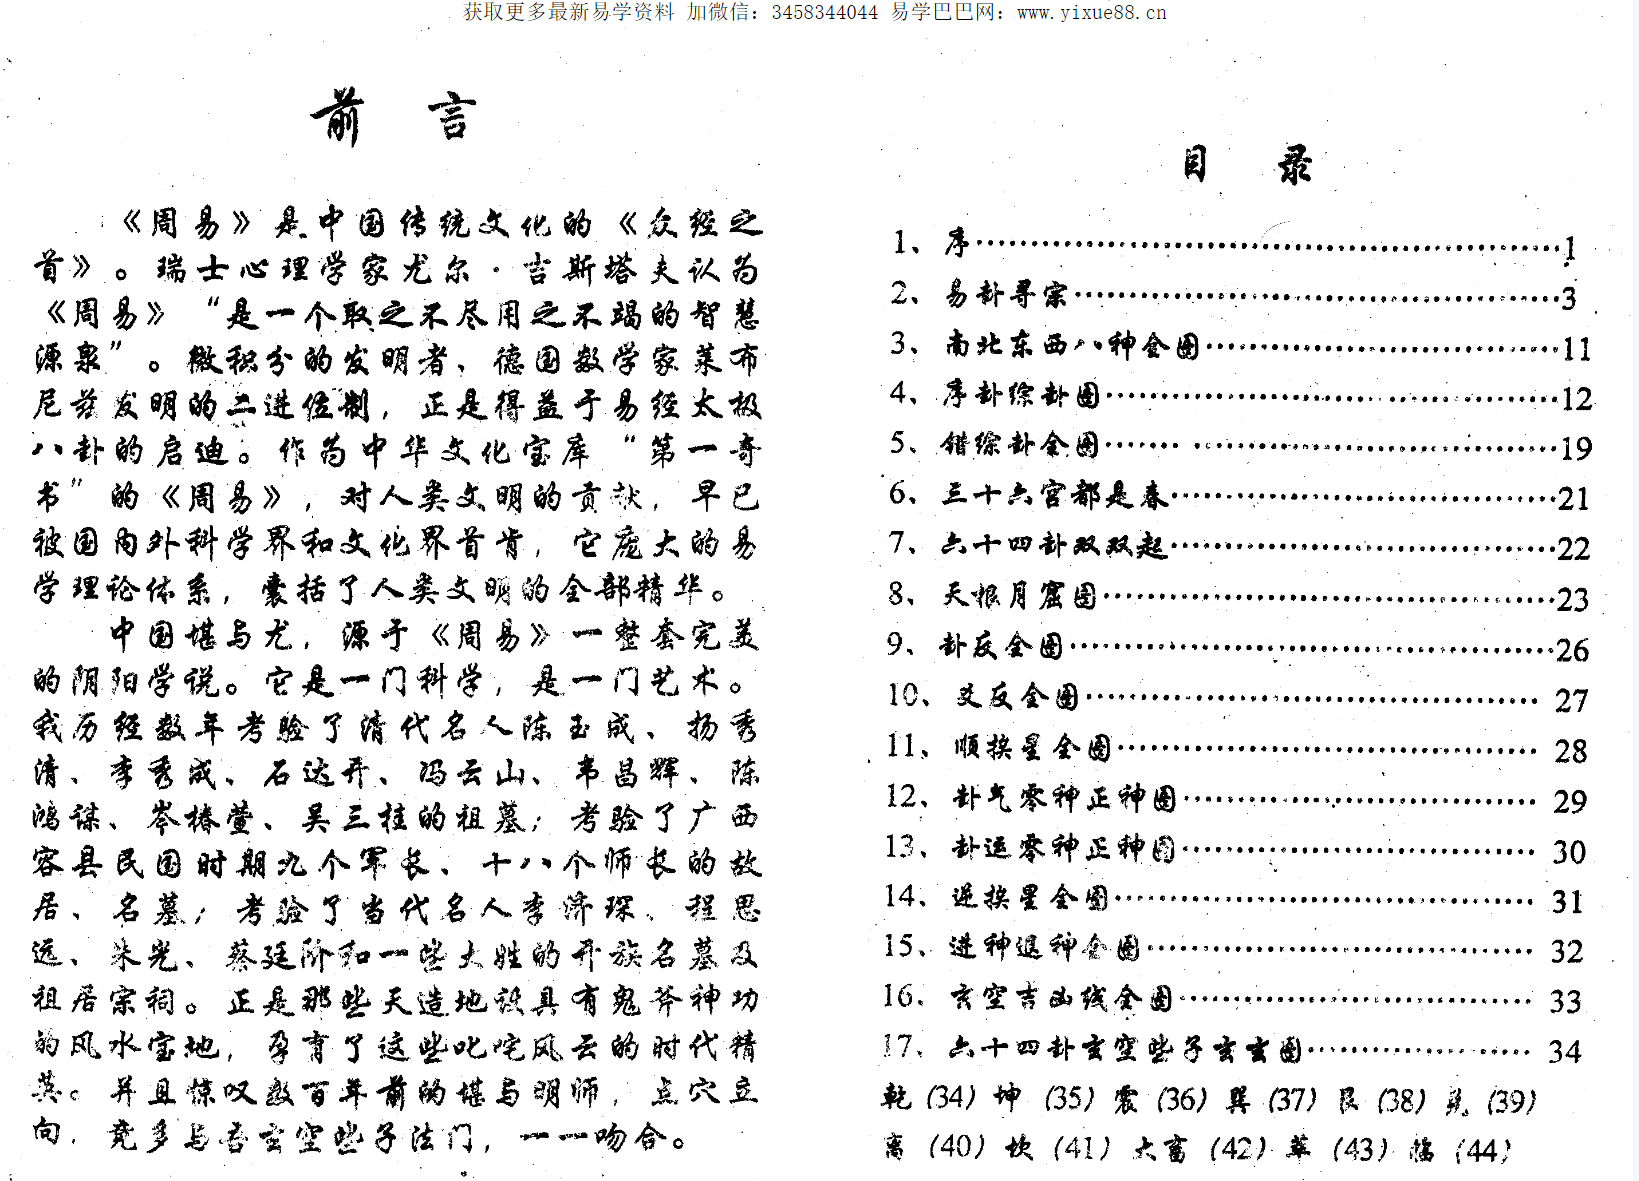 获取更多最新易学资料 加微信：3458344044 易学巴巴网：www.yixue88.cn
前 言
《周易》是中国传统文化的《众经之
首》。瑞士心理学家尤尔·吉斯塔夫认为
《周易》“是一个取之不尽用之不竭的智慧
源泉”。微积分的发明者、德国数学家莱布
尼兹发明的二进位制，正是得益于易经太极
八卦的启迪。作为中华文化宝库“第一奇
书”的《周易》，对人类文明的贡献，早已
被国内外科学界和文化界首肯，它庞大的易
学理论体系，囊括了人类文明的全部精华。
中国堪与尤，源于《周易》一整套完美
的阴阳学说。它是一门科学，是一门艺术。
我历经数年考验了清代名人陈玉成、扬秀
清、李秀成、石达开、冯云山、韦昌辉、陈
鸿谋、岑椿萱、吴三桂的祖墓；考验了广西
容县民国时期九个军长、十八个师长的故
居、名墓；考验了当代名人李济琛、程思
远、朱光、蔡廷阶和一些大姓的开族名墓及
祖居宗祠。正是那些天造地设具有鬼斧神功
的风水宝地，孕育了这些叱咤风云的时代精
英。并且惊叹数百年前的堪与明师，点穴立
向，竟多与吾玄空些子法门，一一吻合。
目 录
1、序……………………1
2、易卦寻宗……………………3
3、南北东西八神全图……………………11
4、序卦综卦图……………………12
5、错综卦全图……………………19
6、三十六宫都是春……………………21
7、六十四卦双双起……………………22
8、天根月窟图……………………23
9、卦反全图……………………26
10、爻反全图……………………27
11、顺挨星全图……………………28
12、卦气零神正神图……………………29
13、卦运零神正神图……………………30
14、逆挨星全图……………………31
15、进神退神全图……………………32
16、玄空吉凶线全图……………………33
17、六十四卦玄空些子玄玄图……………………34
乾（34）坤（35）震（36）巽（37）艮（38）兑（39）
离（40）坎（41）大畜（42）萃（43）临（44）